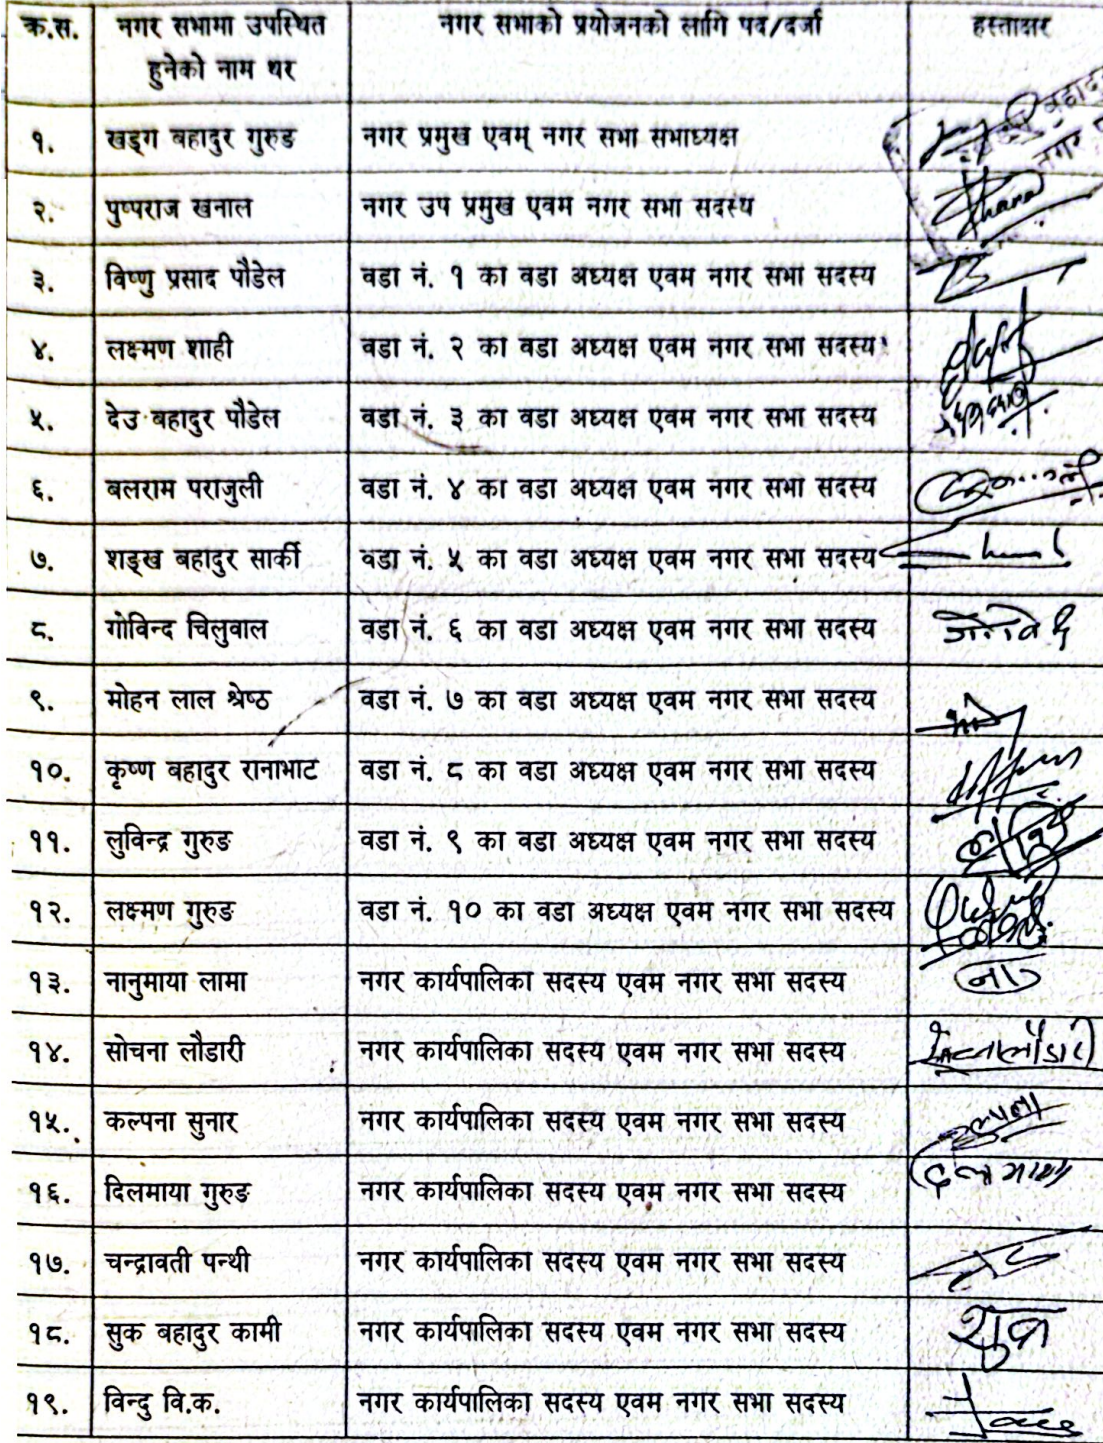 क्र.स. नगर सभामा उपस्थित नगर सभाको प्रयोजनको लागि पद/दर्जा हस्ताक्षर
हुनेको नाम थर
१. खड्ग बहादुर गुरुङ नगर प्रमुख एवम् नगर सभा सभाध्यक्ष
२. पुष्पराज खनाल नगर उप प्रमुख एवम नगर सभा सदस्य
३. विष्णु प्रसाद पौडेल वडा नं. १ का वडा अध्यक्ष एवम नगर सभा सदस्य
४. लक्ष्मण शाही वडा नं. २ का वडा अध्यक्ष एवम नगर सभा सदस्य
५. देउ बहादुर पौडेल वडा नं. ३ का वडा अध्यक्ष एवम नगर सभा सदस्य
६. बलराम पराजुली वडा नं. ४ का वडा अध्यक्ष एवम नगर सभा सदस्य
७. शङ्ख बहादुर सार्की वडा नं. ५ का वडा अध्यक्ष एवम नगर सभा सदस्य
८. गोविन्द चिलुवाल वडा नं. ६ का वडा अध्यक्ष एवम नगर सभा सदस्य
९. मोहन लाल श्रेष्ठ वडा नं. ७ का वडा अध्यक्ष एवम नगर सभा सदस्य
१०. कृष्ण बहादुर रानाभाट वडा नं. ८ का वडा अध्यक्ष एवम नगर सभा सदस्य
११. लुविन्द्र गुरुङ वडा नं. ९ का वडा अध्यक्ष एवम नगर सभा सदस्य
१२. लक्ष्मण गुरुङ वडा नं. १० का वडा अध्यक्ष एवम नगर सभा सदस्य
१३. नानुमाया लामा नगर कार्यपालिका सदस्य एवम नगर सभा सदस्य
१४. सोचना लौडारी नगर कार्यपालिका सदस्य एवम नगर सभा सदस्य
१५. कल्पना सुनार नगर कार्यपालिका सदस्य एवम नगर सभा सदस्य कल्पना
१६. दिलमाया गुरुङ नगर कार्यपालिका सदस्य एवम नगर सभा सदस्य
१७. चन्द्रावती पन्थी नगर कार्यपालिका सदस्य एवम नगर सभा सदस्य
१८. सुक बहादुर कामी नगर कार्यपालिका सदस्य एवम नगर सभा सदस्य
१९. विन्दु वि.क. नगर कार्यपालिका सदस्य एवम नगर सभा सदस्य